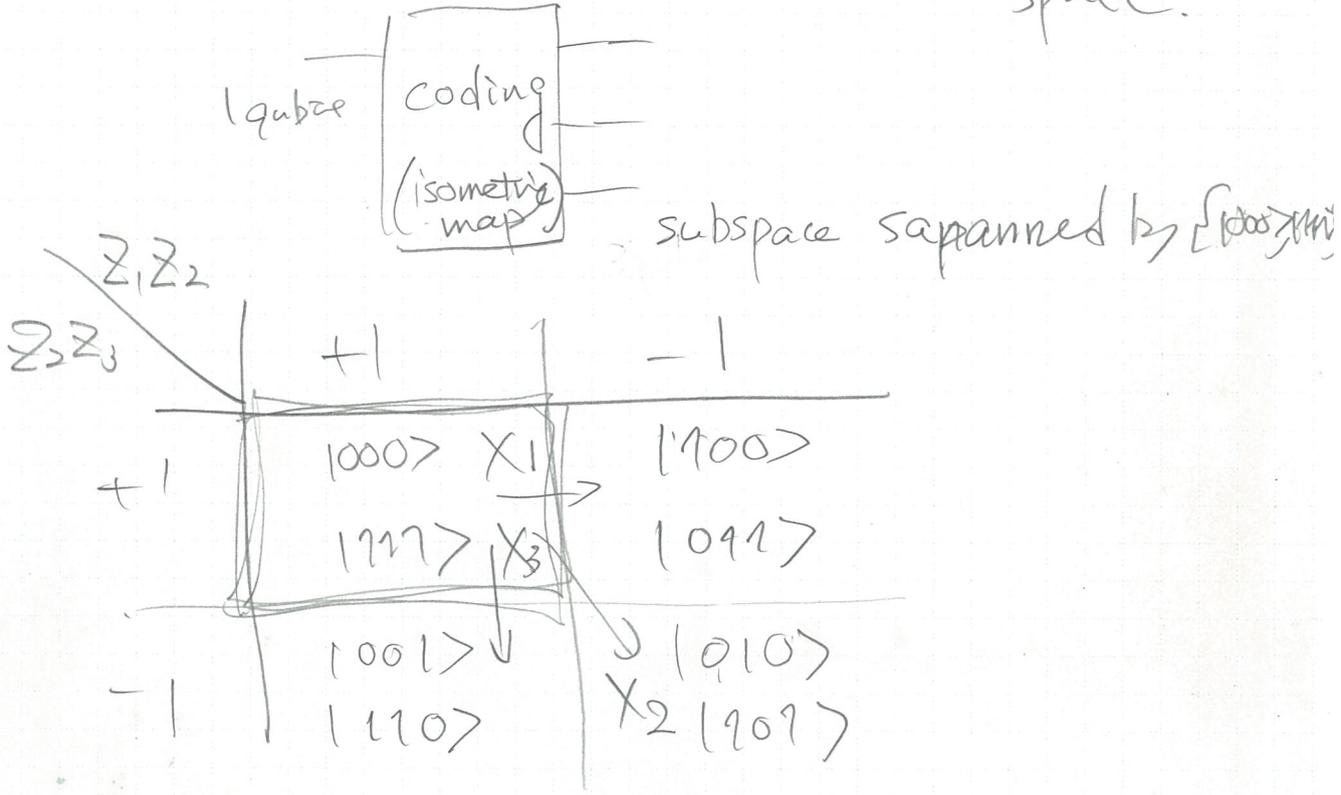 space.
coding
(isometric
map)
subspace sapanned by {|000>,|111>}
Z₁Z₂
Z₂Z₃
+1 -1
+1 |000> X1 |100>
|111> X3 |011>
-1 |001> |010>
|110> X2 |101>